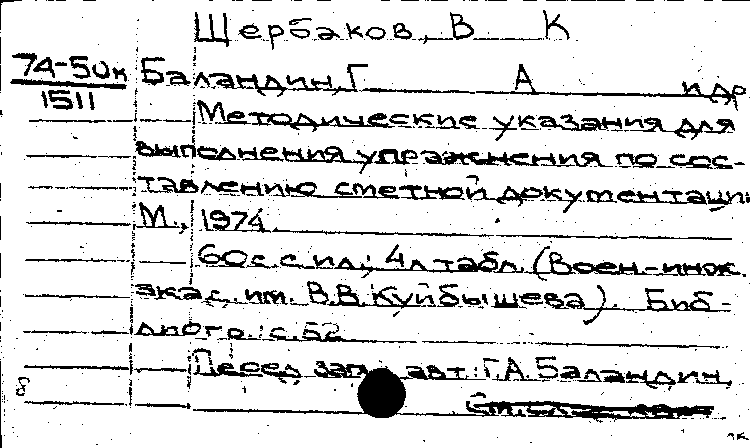 Щербаков, В К
74-50к
1511
Баландин, Г А и др
Методические указания для
выполнения упражнения по сос-
тавлению сметной документации
М., 1974.
60 с. с ил; 4 л табл. (Воен.-инж.
акад. им. В.В. Куйбышева). Биб-
лиогр.: с. 52
Перед загл. авт.: Г.А. Баландин,
8